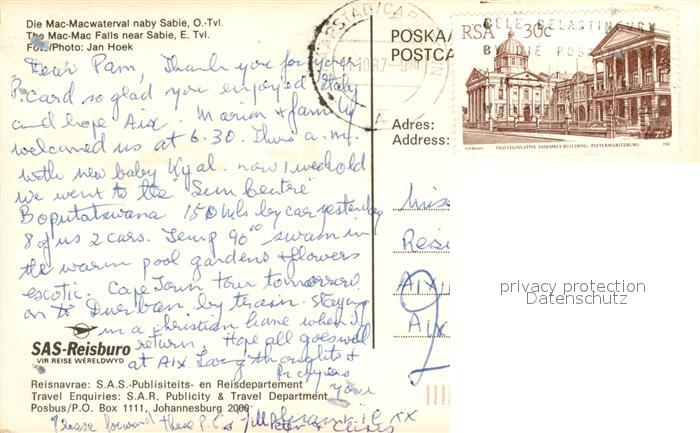 Die Mac-Macwaterval naby Sabie, O.-Tvl.
The Mac-Mac Falls near Sabie, E. Tvl.
Foto/Photo: Jan Hoek
Dear Pam, Thank you for your
P.card so glad you enjoyed Italy
and hope Aix. Marion & family
welcomed us at 6.30. Thurs a.m.
with new baby Kyal. now 1 week old
we went to the "Sun Centre"
Boputatswana 150 mls by car yesterday
8 of us 2 cars. Temp 90°° swam in
the warm pool gardens & flowers
exotic. Cape Town tour tomorrow
on to Durban by train. staying
in a christian home when I
return. Hope all goes well
at Aix. Loving thoughts &
Prayers
your
SAS-Reisburo
VIR REISE WÊRELDWYD
Reisnavrae: S.A.S.-Publisiteits- en Reisdepartement
Travel Enquiries: S.A.R. Publicity & Travel Department
Posbus/P.O. Box 1111, Johannesburg 2000
Please forward these P.C.s
xx
POSKAA
POSTCA
Adres:
Address:
Miss
Resi
Aix
Aix
RSA 30c
OLD LEGISLATIVE ASSEMBLY BUILDING, PIETERMARITZBURG
1982
privacy protection
Datenschutz